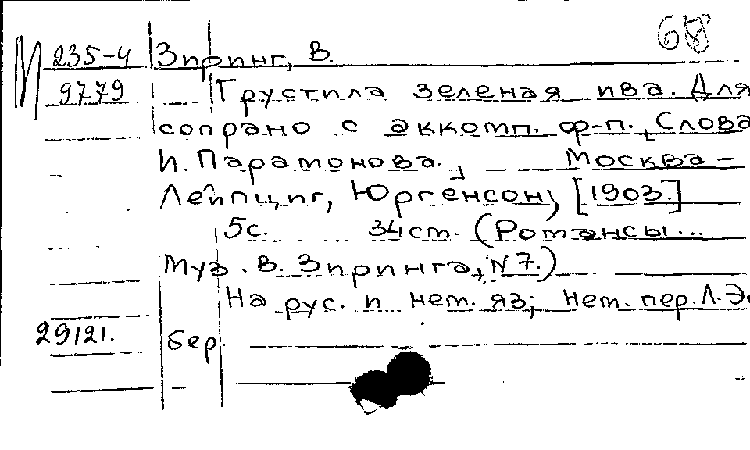 68
М 235-4 Зиринг, В.
9779 Грустила зеленая ива. Для
сопрано с аккомп. ф-п. [Слова
И. Парамонова.] Москва -
Лейпциг, Юргенсон, [1903.]
5с. 34ст. (Романсы...
Муз. В. Зиринга, N 7.)
На рус. и нем. яз; нем. пер. Л. Э.
29121. бер